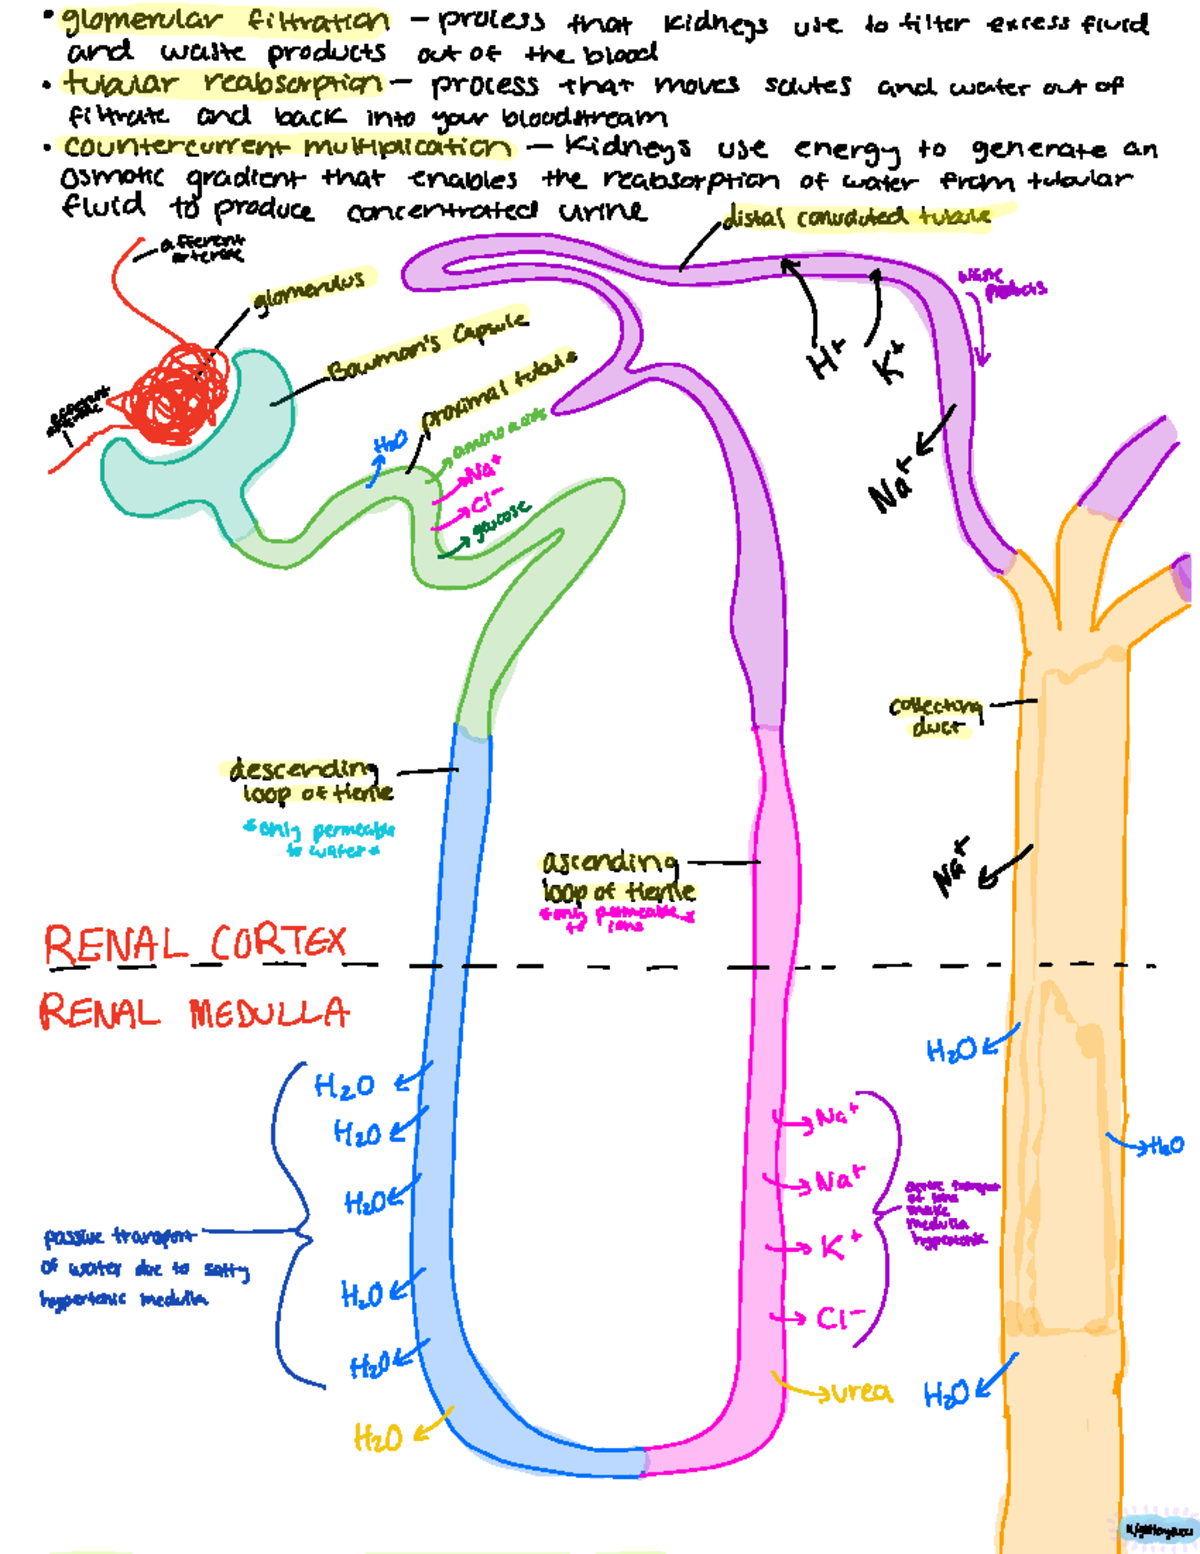 • glomerular filtration – process that kidneys use to filter excess fluid
and waste products out of the blood
• tubular reabsorption – process that moves solutes and water out of
filtrate and back into your bloodstream
• countercurrent multiplication – kidneys use energy to generate an
osmotic gradient that enables the reabsorption of water from tubular
fluid to produce concentrated urine
distal convoluted tubule
afferent
arteriole
glomerulus
waste
products
Bowman's Capsule
H+
K+
efferent
arteriole
proximal tubule
H₂O
amino acids
Na+
Cl-
glucose
Na+
collecting
duct
descending
loop of Henle
*only permeable
to water*
ascending
loop of Henle
*only permeable*
to ions
Na+
RENAL CORTEX
RENAL MEDULLA
H₂O
H₂O
H₂O
H₂O
H₂O
H₂O
passive transport
of water due to salty
hypertonic medulla
Na+
Na+
K+
Cl-
urea
active transport
of ions
make
medulla
hypertonic
H₂O
H₂O
H₂O